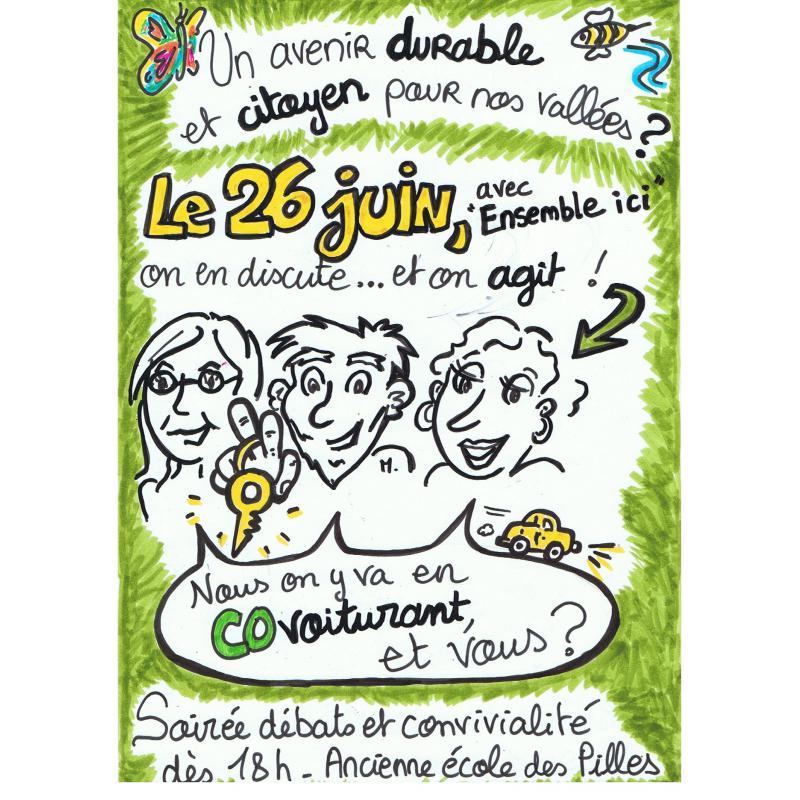 Un avenir durable
et citoyen pour nos vallées ?
Le 26 juin, avec
"Ensemble ici"
on en discute... et on agit !
M.
Nous on y va en
covoiturant,
et vous ?
Soirée débats et convivialité
dès 18h - Ancienne école des Pilles